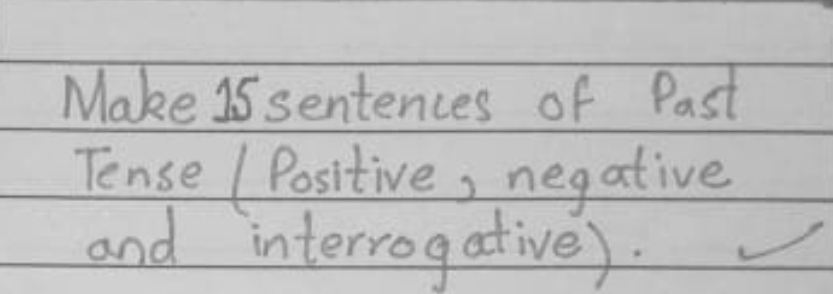 Make 15 sentences of Past
Tense (Positive, negative
and interrogative).